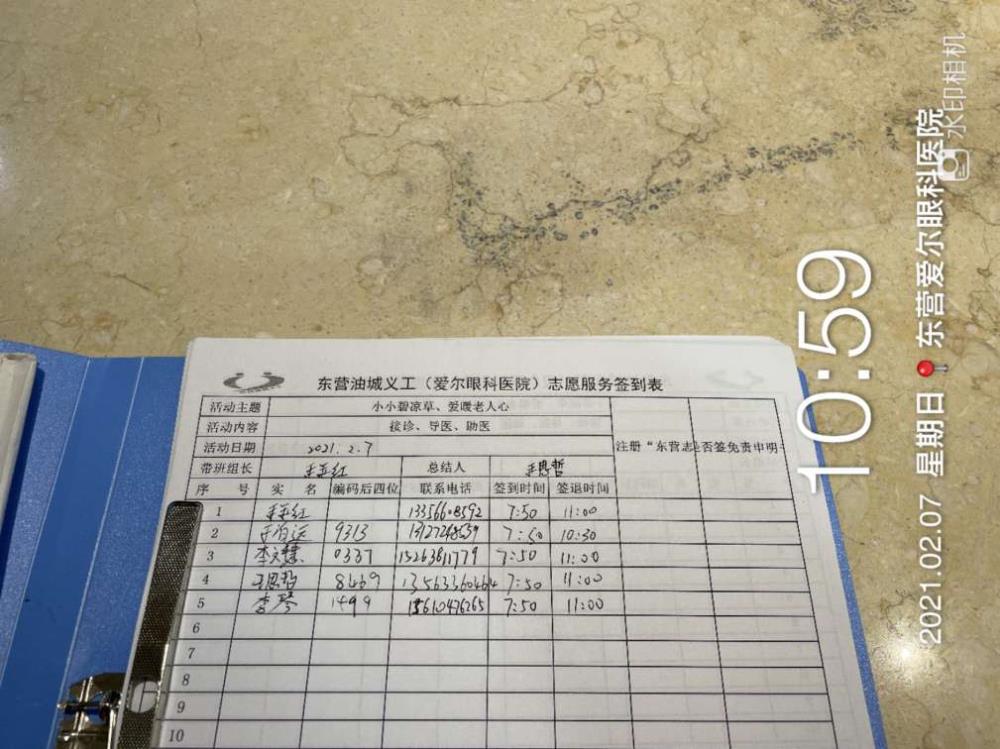 东营油城义工（爱尔眼科医院）志愿服务签到表
活动主题 小小碧凉草、爱暖老人心
活动内容 接诊、导医、助医
活动日期 2021.2.7 注册“东营志 是否签免责申明
带班组长 总结人 王思哲
序号 实名 编码后四位 联系电话 签到时间 签退时间
1 7:50 11:00
2 9313 7:50 10:30
3 李文慧 0337 15263811779 7:50 11:00
4 王思哲 8469 13563360464 7:50 11:00
5 李琴 1499 15610476265 7:50 11:00
6
7
8
9
10
10:59
2021.02.07 星期日 东营爱尔眼科医院
水印相机